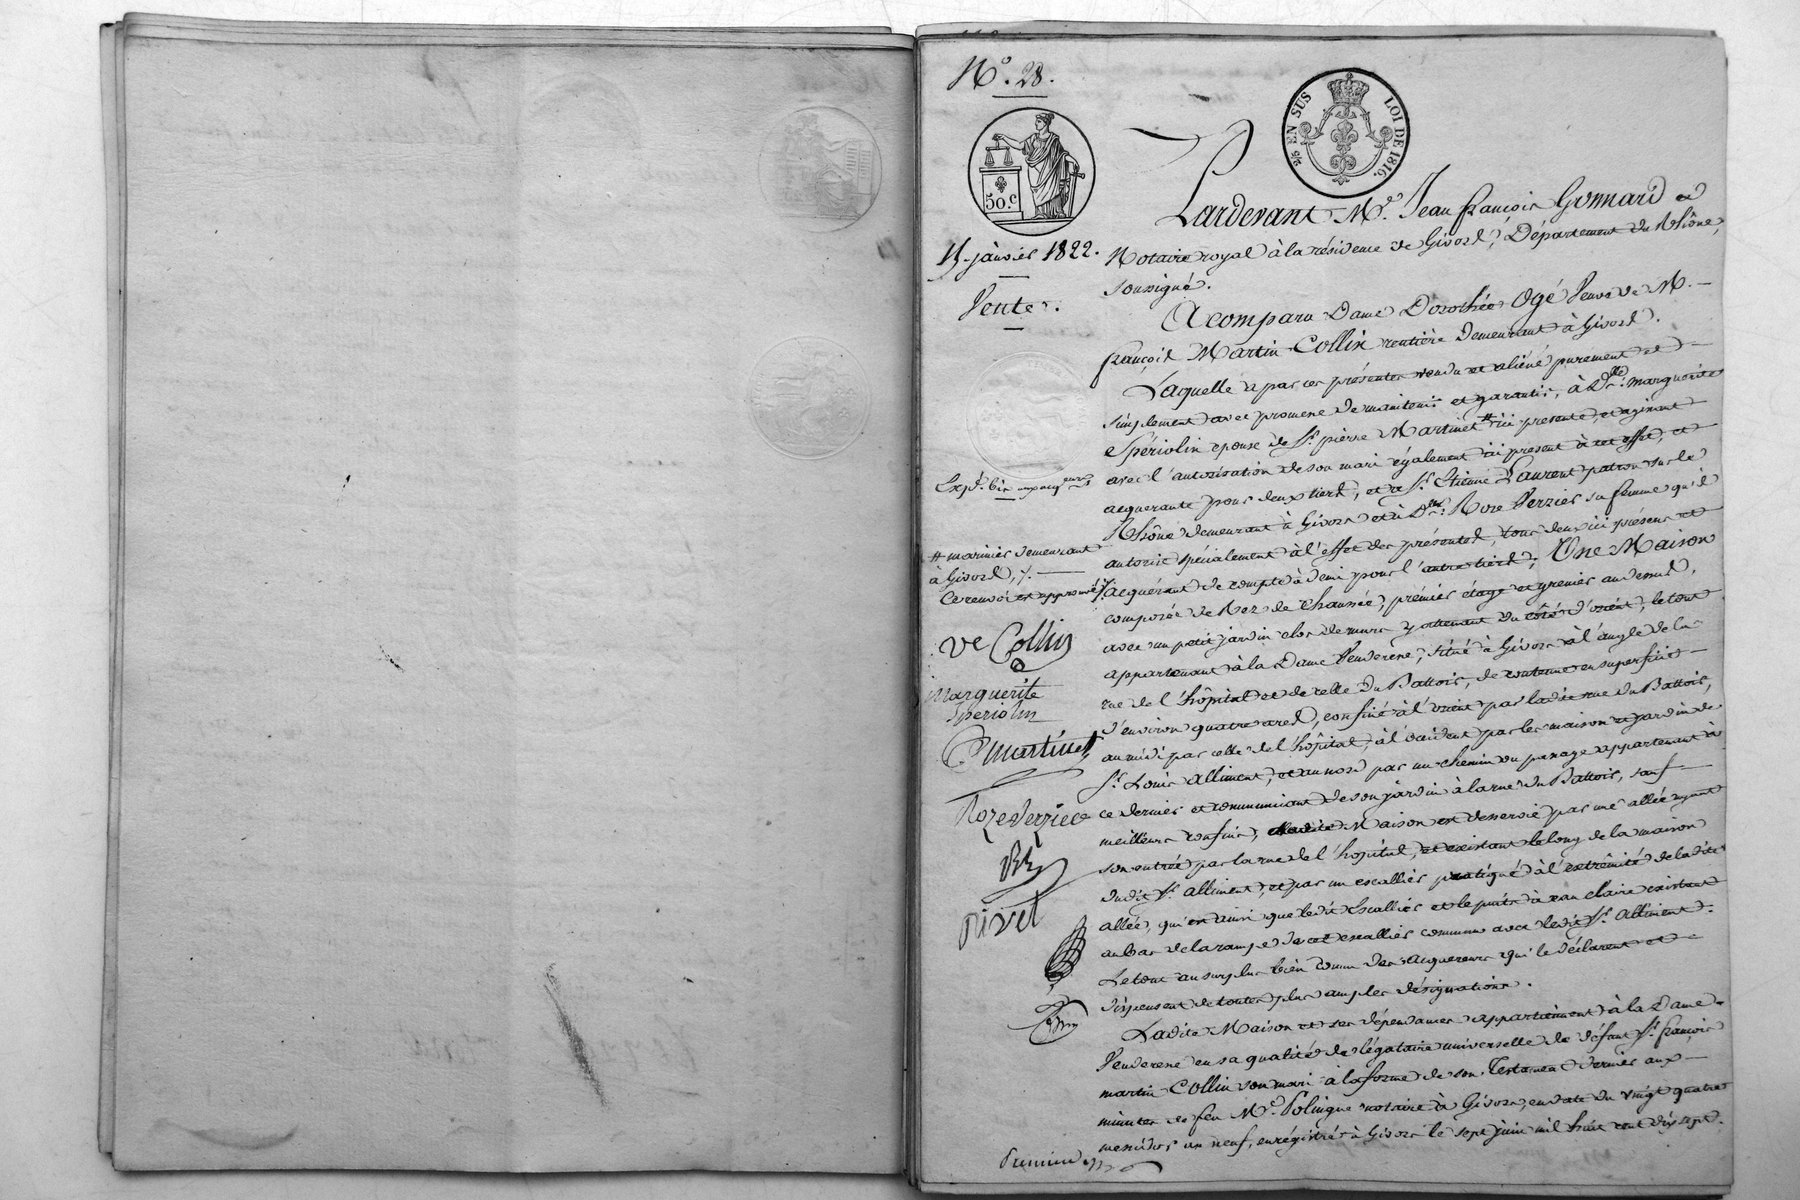 N.° 28.
2/5 EN SUS LOI DE 1816.
50.c
15 janvier 1822.
Vente.
Pardevant M.e Jean françois Gonnard
Notaire royal à la résidence de Givors, Département du Rhône,
soussigné.
A comparu Dame Dorothée Ogé Veuve de M.
françois Martin Collin rentière demeurant à Givors.
Laquelle a par ces présentes vendu et aliéné purement et
simplement avec promesse de maintenir et garantir, à D.e marguerite
Spériolin epouse de S.r pierre Martinet # ici présente, et agissant
avec l'autorisation de son mari également ici présent à cet effet, et
acquerante pour deux tiers, et à S.r Etienne Laurent patron sur le
Rhône demeurant à Givors et à D.e Roze Verzier sa femme qu'il
autorise spécialement à l'effet des présentes, tous deux ici présens et
acquérant de compte à demi pour l'autre tiers; Une Maison
composée de Rez de chaussée, prémier étage et grenier au dessus,
avec un petit jardin clos de murs y attenant du côté d'orient, le tout
appartenant à la Dame Venderesse, situé à Givors à l'angle de la
rue de l'hôpital et de celle du Battoir, de contenue en superficie
d'environ quatre ares, confiné à l'orient par ladite rue du Battoir,
au midi par celle de l'hôpital, à l'occident par les maison et jardin de
S.r Louis Alliment, et au nord par un chemin ou passage appartenant à
ce dernier et communiquant de son jardin à la rue du Battoir, sauf
meilleurs confins, ladite Maison est desservie par une allée ayant
son entrée par la rue de l'hôpital, et existant le long de la maison
dudit S.r Alliment, et par un escallier pratiqué à l'extrêmité de ladite
allée, qui est ainsi que ledit Escallier et le puits à eau claire existant
au bas de la rampe de cet escallier commun avec ledit S.r Alliment.
Le tout au surplus bien connu des acquereurs qui le déclarent et
dispensent de toutes plus amples désignations.
Ladite Maison et ses dépendances appartiennent à la Dame
Venderesse en sa qualité de légataire universelle de défunt S.r françois
martin Collin son mari à la forme de son Testament dernier aux
minutes de feu M.e Polingue notaire à Givors, en date du vingt quatre
messidor an neuf, enrégistré à Givors le sept juin mil huit cent dix sept.
Exp. bis aux acquereurs
# marinier demeurant
à Givors, /.
Ce renvoi est approuvé /.
Ve Collin
Marguerite
Speriolin
Martinet
Roze Verzier
Rivet
Premier